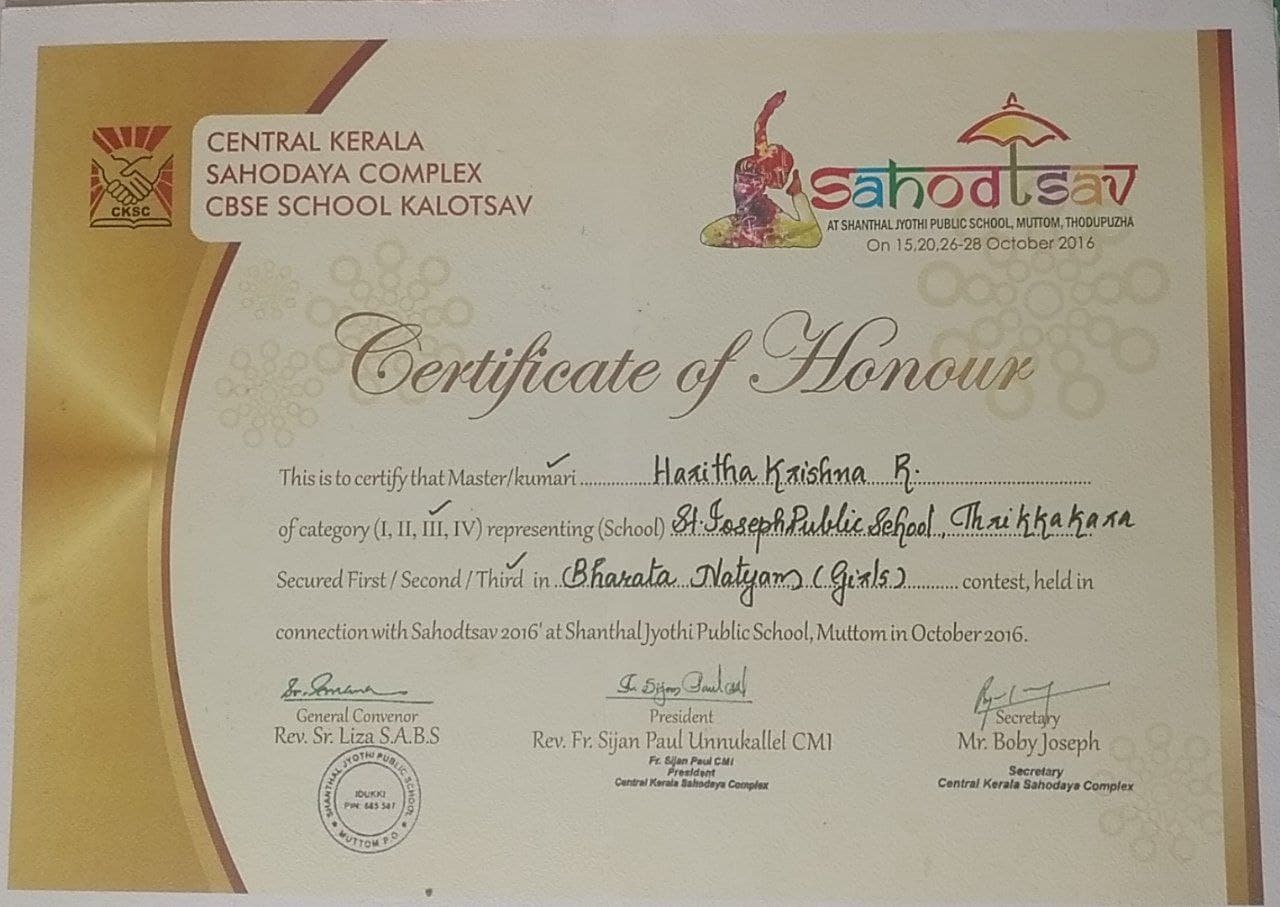 CENTRAL KERALA
SAHODAYA COMPLEX
CBSE SCHOOL KALOTSAV
CKSC
sahodtsav
AT SHANTHAL JYOTHI PUBLIC SCHOOL, MUTTOM, THODUPUZHA
On 15,20,26-28 October 2016
Certificate of Honour
This is to certify that Master/kumari ............Haritha Krishna R.............
of category (I, II, III, IV) representing (School) St. Joseph Public School, Thrikkakara
Secured First / Second / Third in ..Bharata Natyam (Girls)........... contest, held in
connection with Sahodtsav 2016' at Shanthal Jyothi Public School, Muttom in October 2016.
General Convenor
Rev. Sr. Liza S.A.B.S
SHANTHAL JYOTHI PUBLIC SCHOOL
IDUKKI
PIN: 685 587
MUTTOM P.O.
Fr. Sijan Paul CMI
President
Rev. Fr. Sijan Paul Unnukallel CMI
Fr. Sijan Paul CMI
President
Central Kerala Sahodaya Complex
Secretary
Mr. Boby Joseph
Secretary
Central Kerala Sahodaya Complex